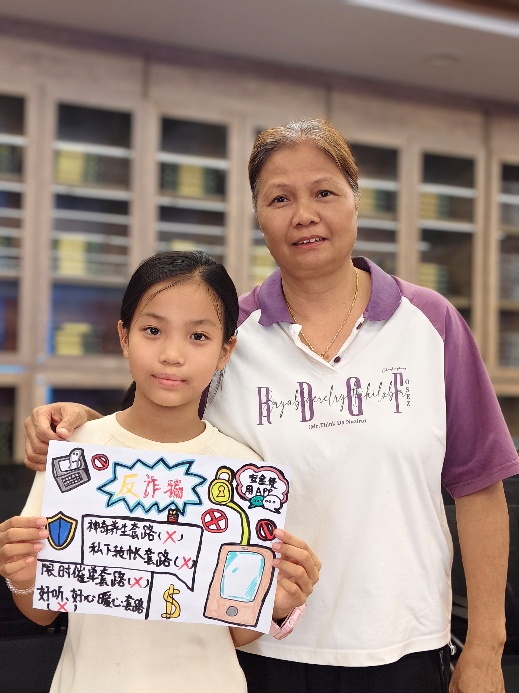 反诈骗
安全使
用APP
神奇养生套路(X)
私下转帐套路(X)
限时催单套路(X)
好听、好心暖心套路
(X)
R D G T
OSEZ
(Mr.Think Da Nozire)